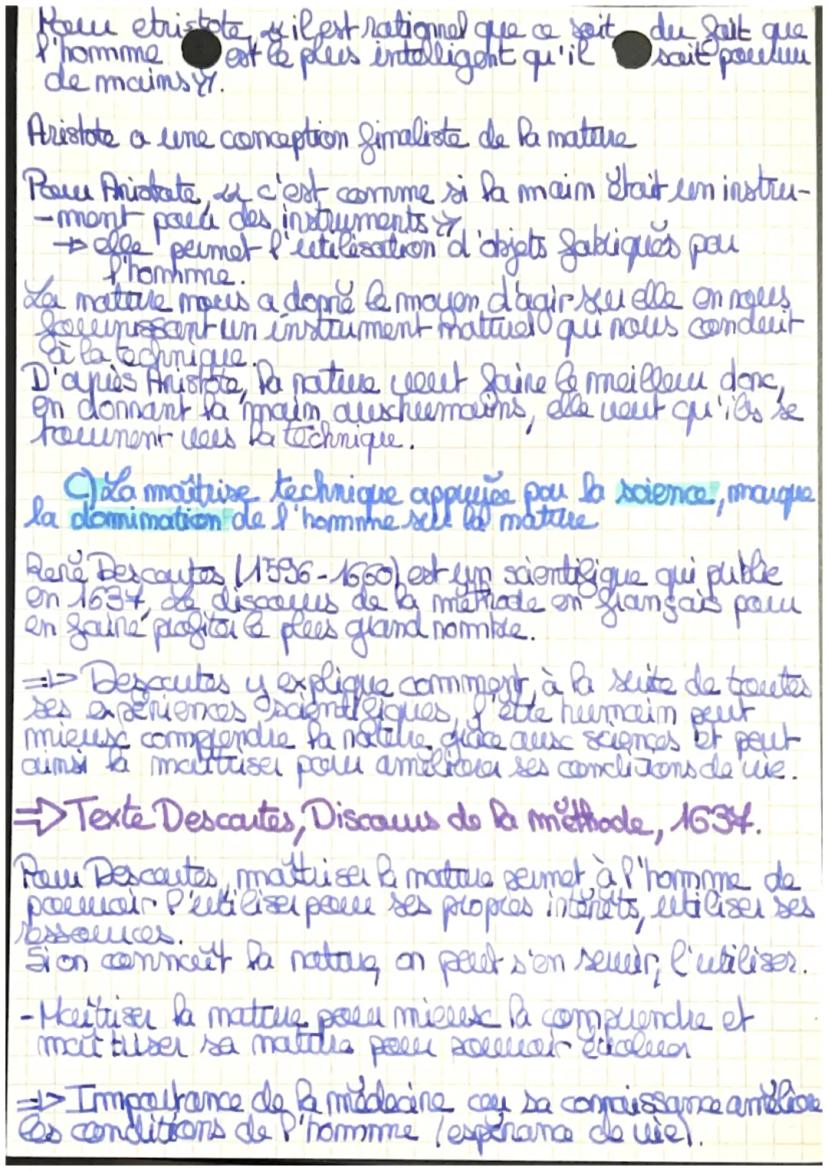 Pour Aristote, « il est rationnel que ce soit du fait que
l'homme est le plus intelligent qu'il soit pourvu
de mains ».
Aristote a une conception finaliste de la nature
Pour Aristote, « c'est comme si la main était un instru-
-ment pour des instruments »
→ elle permet l'utilisation d'objets fabriqués par
l'homme.
La nature nous a donné le moyen d'agir sur elle en nous
fournissant un instrument naturel qui nous conduit
à la technique.
D'après Aristote, la nature veut faire le meilleur donc,
en donnant la main aux humains, elle veut qu'ils se
tournent vers la technique.
C) La maîtrise technique appuyée par la science, marque
la domination de l'homme sur la nature
René Descartes (1596-1660) est un scientifique qui publie
en 1637, Le discours de la méthode en français pour
en faire profiter le plus grand nombre.
=> Descartes y explique comment, à la suite de toutes
ses expériences scientifiques, l'être humain peut
mieux comprendre la nature grâce aux sciences et peut
ainsi la maîtriser pour améliorer ses conditions de vie.
=> Texte Descartes, Discours de la méthode, 1637.
Pour Descartes, maîtriser la nature permet à l'homme de
pouvoir l'utiliser pour ses propres intérêts, utiliser ses
ressources.
Si on connaît la nature, on peut s'en servir, l'utiliser.
- Maîtriser la nature pour mieux la comprendre et
maîtriser sa nature pour pouvoir évoluer
=> Importance de la médecine car sa connaissance améliore
les conditions de l'homme (espérance de vie).